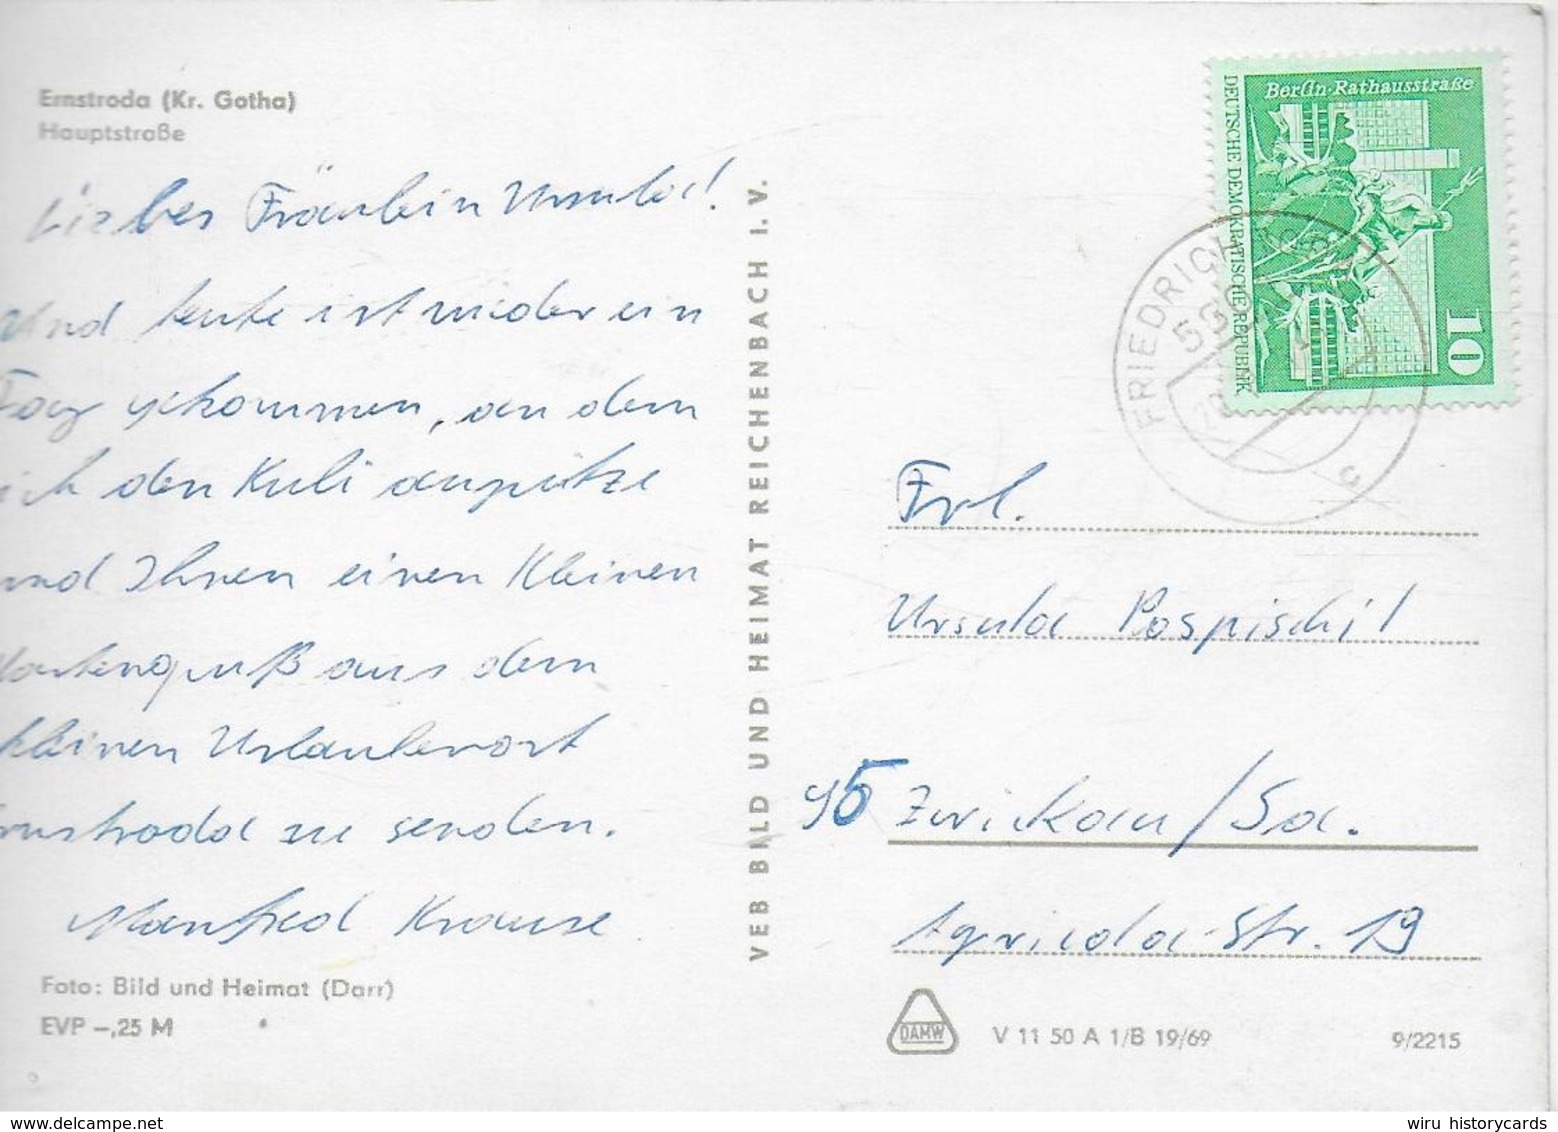 Ernstroda (Kr. Gotha)
Hauptstraße
Liebes Fräulein Ursula!
Und heute ist wieder ein
Tag gekommen, an dem
ich den Kuli anspitze
und Ihnen einen kleinen
Kartengruß aus dem
kleinen Urlauberort
Ernstroda zu senden.
Manfred Krause
Foto: Bild und Heimat (Darr)
EVP –,25 M
VEB BILD UND HEIMAT REICHENBACH I. V.
Berlin-Rathausstraße
DEUTSCHE DEMOKRATISCHE REPUBLIK
10
c
Frl.
Ursula Pospischil
95 Zwickau/Sa.
Agricola-Str. 19
DAMW
V 11 50 A 1/B 19/69
9/2215
wiru historycards